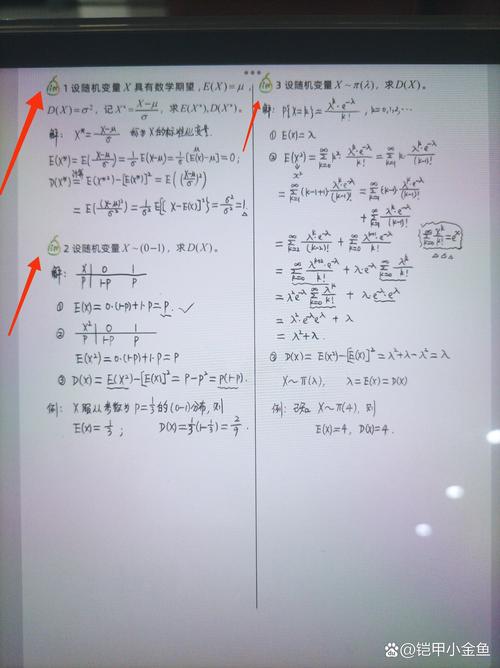 例 1 设随机变量 X 具有数学期望, E(X)=μ,
D(X)=σ², 记 X*=(X-μ)/σ, 求 E(X*), D(X*)。
解: X*=(X-μ)/σ 称为 X 的标准化变量.
E(X*)=E(X-μ)/σ)=1/σ E(X-μ)=1/σ[E(X)-μ]=0;
D(X*)=E(X*²)-[E(X*)]²=E((X-μ)/σ)²)
=E((X-μ)²/σ²)=1/σ² E{[X-E(X)]²}=σ²/σ²=1.
例 2 设随机变量 X~(0-1), 求 D(X)。
解: X 0 1
P 1-P P
① E(X)=0·(1-P)+1·P=P. ✓
② X² 0 1
P 1-P P
E(X²)=0·(1-P)+1·P=P
③ D(X)=E(X²)-[E(X)]²=P-P²=P(1-P).
例: X服从参数为P=1/3的(0-1)分布, 则
E(X)=1/3; D(X)=1/3(1-1/3)=2/9.
例 3 设随机变量 X~π(λ), 求 D(X)。
解: P{X=k}=λᵏ·e^-λ/k!, k=0,1,2,…
① E(X)=λ
② E(X²)=∑_{k=0}^∞ k² λᵏ·e^-λ/k!=∑_{k=1}^∞ k·λᵏ·e^-λ/(k-1)!
=∑_{k=1}^∞ (k-1+1)λᵏ·e^-λ/(k-1)!=∑_{k=1}^∞ (k-1)λᵏ·e^-λ/(k-1)!
+∑_{k=1}^∞ λᵏ·e^-λ/(k-1)!
=∑_{k=2}^∞ λᵏ·e^-λ/(k-2)!+∑_{k=0}^∞ λ^{k+1}·e^-λ/k! ∑_{k=0}^∞ λᵏ/k!=e^λ
=∑_{k=0}^∞ λ^{k+2}·e^-λ/k!+λ·e^-λ∑_{k=0}^∞ λᵏ/k!
=λ²e^-λ∑_{k=0}^∞ λᵏ/k!+λ·e^-λ·e^λ
=λ²·e^-λe^λ+λ
=λ²+λ.
③ D(X)=E(X²)-[E(X)]²=λ²+λ-λ²=λ
X~π(λ), λ=E(X)=D(X)
例: X~π(4), 则
E(X)=4, D(X)=4.
@铠甲小金鱼